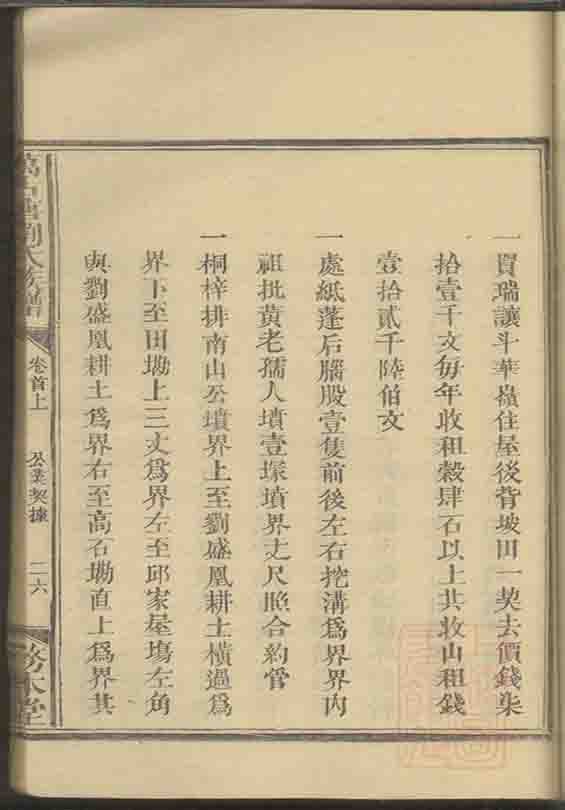 一買瑞讓斗華嶺住屋後背坡田一契去價錢柒
拾壹千文每年收租穀肆石以上共收山租錢
壹拾貳千陸伯文
一處紙蓬后腦股壹隻前後左右挖溝爲界界内
祖批黃老孺人墳壹塚墳界丈尺照合約管
一桐梓排南山公墳界上至劉盛凰耕土橫過爲
界下至田墈上三丈爲界左至邱家屋塲左角
與劉盛凰耕土爲界右至高石墈直上爲界其
劉氏族譜
卷首上
公業契據
二六
務本堂